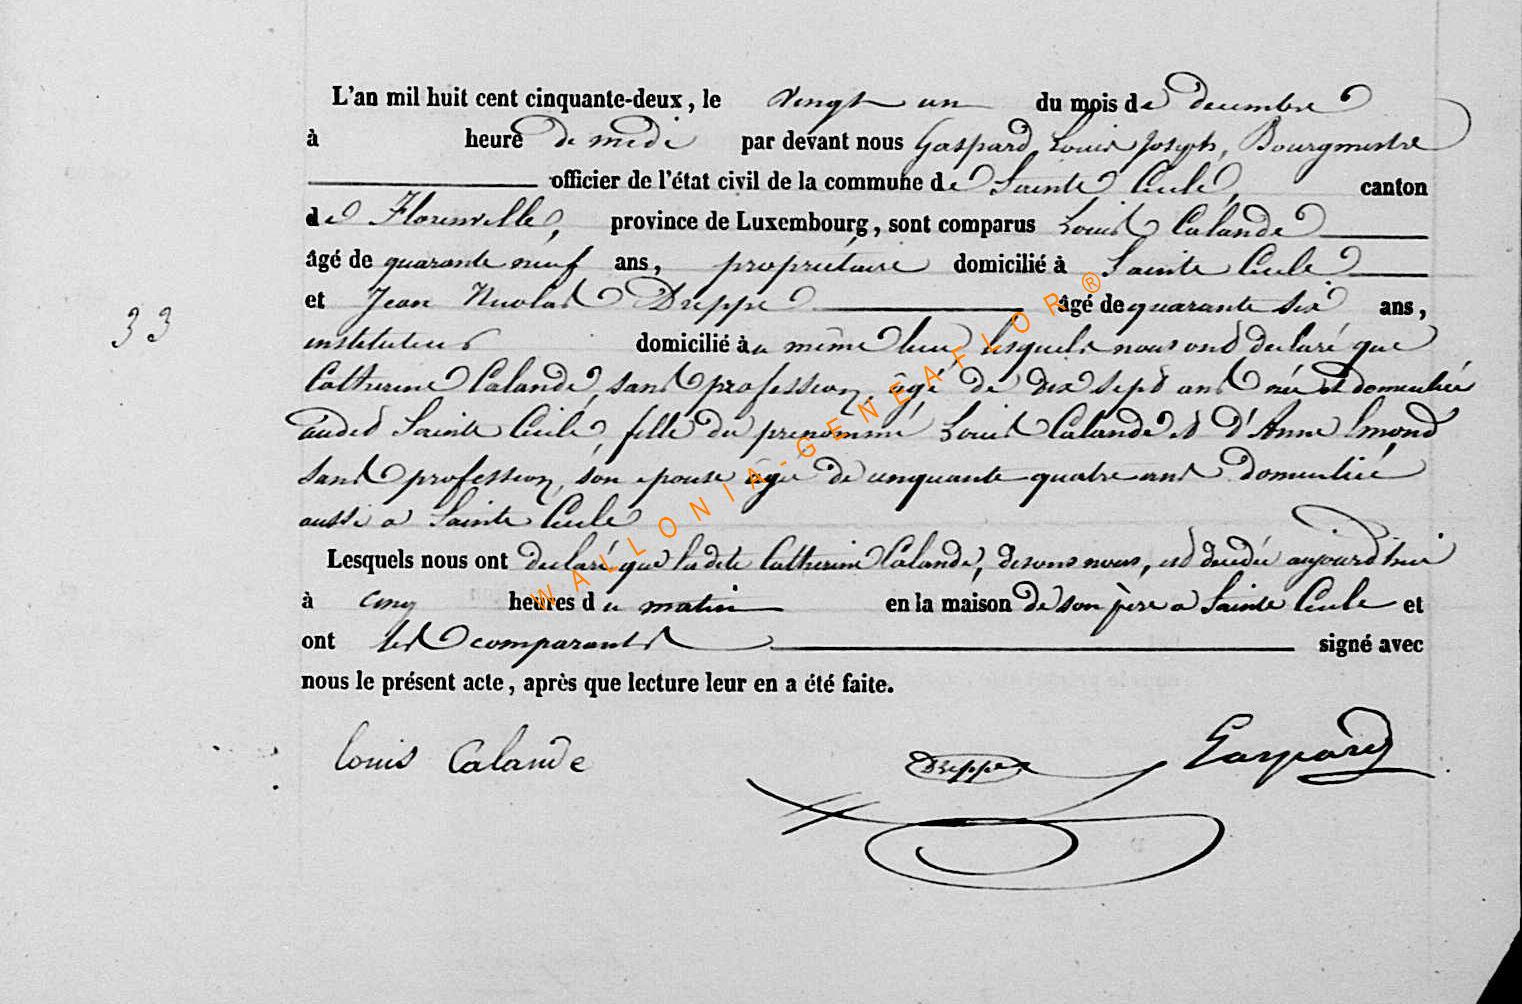 L'an mil huit cent cinquante-deux, le vingt un du mois de decembre
à heure de midi par devant nous Gaspard Louis Joseph, Bourgmestre
officier de l'état civil de la commune de Sainte Cecile, canton
de Florenville, province de Luxembourg, sont comparus Louis Calande
âgé de quarante neuf ans, propriétaire domicilié à Sainte Cecile
et Jean Nicolas Dreppe âgé de quarante six ans,
33
instituteur domicilié au même lieu lesquels nous ont declaré que
Catherine Calande, sans profession, âgé de dix sept ans née et domiciliée
audit Sainte Cecile, fille du prenommé Louis Calande et d'Anne Emond
sans profession, son epouse âgée de cinquante quatre ans domiciliée
aussi a Sainte Cecile
Lesquels nous ont declaré que ladite Catherine Calande, disons nous, est decedée aujourd'hui
à cinq heures du matin en la maison de son père a Sainte Cecile et
ont les comparants signé avec
nous le présent acte, après que lecture leur en a été faite.
Louis Calande Dreppe Gaspard
WALLONIA-GENEAFLOR®